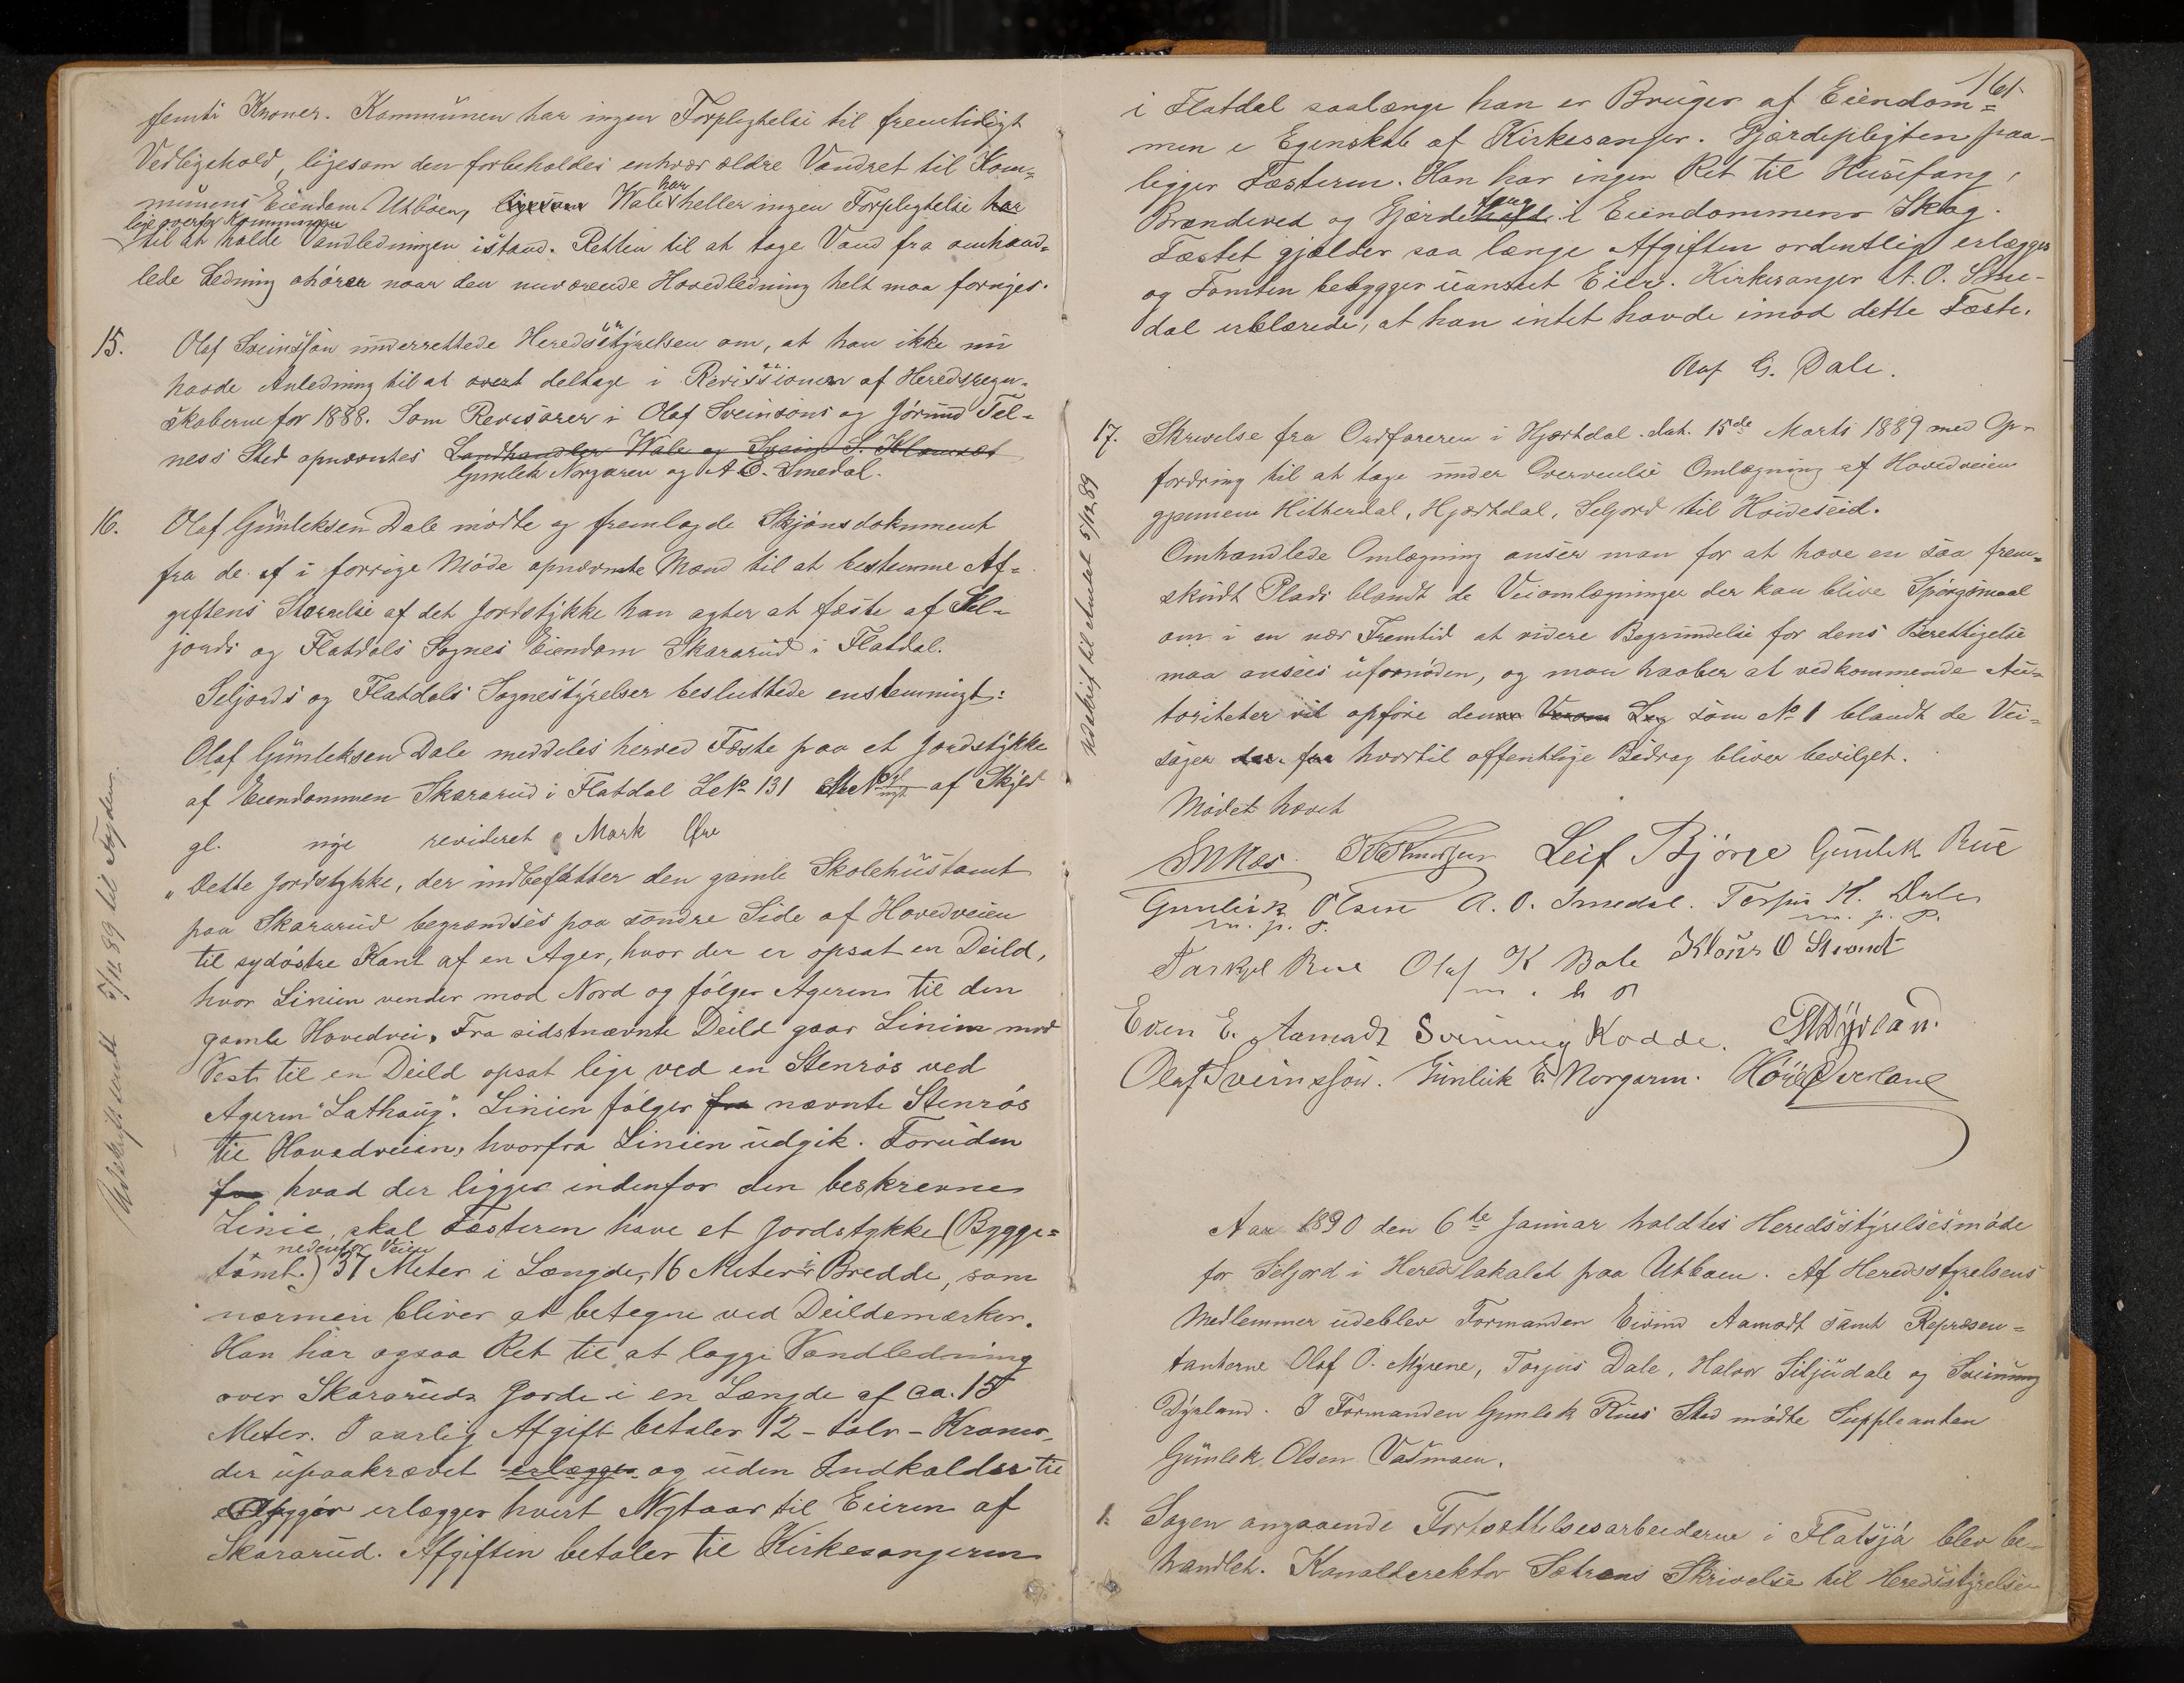 femti Kroner. Kommunen har ingen Forpligtelse til fremtidigt
Vedligehold, ligesom den forbeholdes enhver ældre Vandret til Kom=
munens Eiendom Utböen, ligesom Wale har heller ingen Forpligtelse har
ligeoverfor Kommunen
til at holde Vandledningen istand. Retten til at tage Vand fra omhand=
lede Ledning ohörer naar den nuværende Hovedledning helt maa fornyes.
15. Olaf Sveinsson underrettede Heredsstyrelsen om, at han ikke nu
havde Anledning til at deltage i Revissionen af Heredsregn-
skaberne for 1888. Som Revisorer i Olaf Sveinsons og Jörund Tel=
ness Sted opnævntes Landhandler Wale og Svein S.
Gunlek Norgaren og A O. Smedal.
16. Olaf Gunleksen Dale mödte og fremlagde Skjönsdokument
fra de af i forrige Möde opnævnte Mænd til at bestemme Af=
giftens Störrelse af det Jordstykke han agter at fæste af Sel=
jords og Flatdals Sognes Eiendom Skararud i Flatdal.
Seljords og Flatdals Sognestyrelser besluttede enstemmigt:
Olaf Gunleksen Dale meddeles herved Fæste paa et Jordstykke
af Eiendommen Skararud i Flatdal LNo 131 af Skyld
gl. nye revideret Mark Øre
"Dette Jordstykke, der indbefatter den gamle Skolehustomt
paa Skararud begrændses paa söndre Side af Hovedveien
til sydöstre Kant af en Ager, hvor der er opsat en Deild,
hvor Linien vender mod Nord og fölger Ageren til den
gamle Hovedvei. Fra sidstnævnte Deild gaar Linien mod
Vest til en Deild opsat lige ved en Stenrös ved
Ageren "Lathaug". Linien fölger fra nævnte Stenrös
til Hovedveien, hvorfra Linien udgik. Foruden
fra hvad der ligger indenfor den beskrevne
Linie, skal Fæsteren have et Jordstykke (Bygge=
nedenfor Veien
tomt.) 37 Meter i Længde, 16 Meter i Bredde, som
nærmere bliver at betegne ved Deildemærker.
Han har ogsaa Ret til at lægge Vandledning
over Skararuds Jorde i en Længde af ca. 15
Meter. I aarlig Afgift betales 12 - tolv - Kroner,
der upaakrævet erlægges og uden Indkaldelse til
erlægges hvert Nytaar til Eieren af
Skararud. Afgiften betales til Kirkesangeren
Udskrift sendt 5/12 89 til Fogden.
161.
i Flatdal saalænge han er Bruger af Eiendom=
men i Egenskab af Kirkesanger. Gjærdepligten paa-
ligger Fæsteren. Han har ingen Ret til Husefang,
Brændeved og Gjærdefang i Eiendommens Skog.
Fæstet gjælder saa længe Afgiften ordentlig erlægges
og Tomten bebygges uanseet Eier. Kirkesanger A. O. Sme-
dal erklærede, at han intet havde imod dette Fæste.
Olaf G. Dale.
17. Skrivelse fra Ordföreren i Hjartdal dat. 15de Marts 1889 med Op-
fordring til at tage under Overveielse Omlægning af Hovedveien
gjennem Hitterdal, Hjartdal, Seljord til Höideseid.
Omhandlede Omlægning anser man for at have en saa frem=
skudt Plads blandt de Veiomlægninger der kan blive Spörgsmaal
om i en nær Fremtid at videre Begrundelse for dens Berettigelse
maa ansees ufornöden, og man haaber at vedkommende Au=
toriteter vil opföre denne som No 1 blandt de Vei=
sager der faa hvortil offentlige Bidrag bliver bevilget.
Mödet hævet
Udskrift til Amtet 5/12 89
Leif Björge Gunlek Rue
Gunleik Olsen A. O. Smedal. Torjus H. Dale
m. p. P.
Tarkjel Rue Olaf K Bale Klaus O Strand
Even E. Aamodt Sveinung Kodde.
Olaf Sveinsson. Gunleik E. Norgaren.
Aar 1890 den 6te Januar holdtes Heredsstyrelsesmöde
for Seljord i Heredslokalet paa Utböen. Af Heredsstyrelsens
Medlemmer udeblev Formanden Eivind Aamodt samt Repræsen=
tanterne Olaf O. Myrene, Torjus Dale, Halvor Siljudale og Sveinung
Dyrland. I Formanden Gunlek Rues Sted mödte Suppleanten
Gunlek Olsen Vasmoen.
1. Sagen angaaende Fortsættelsesarbeiderne i Flatsjå blev be-
handlet. Kanaldirektör Sætrens Skrivelse til Heredsstyrelsen